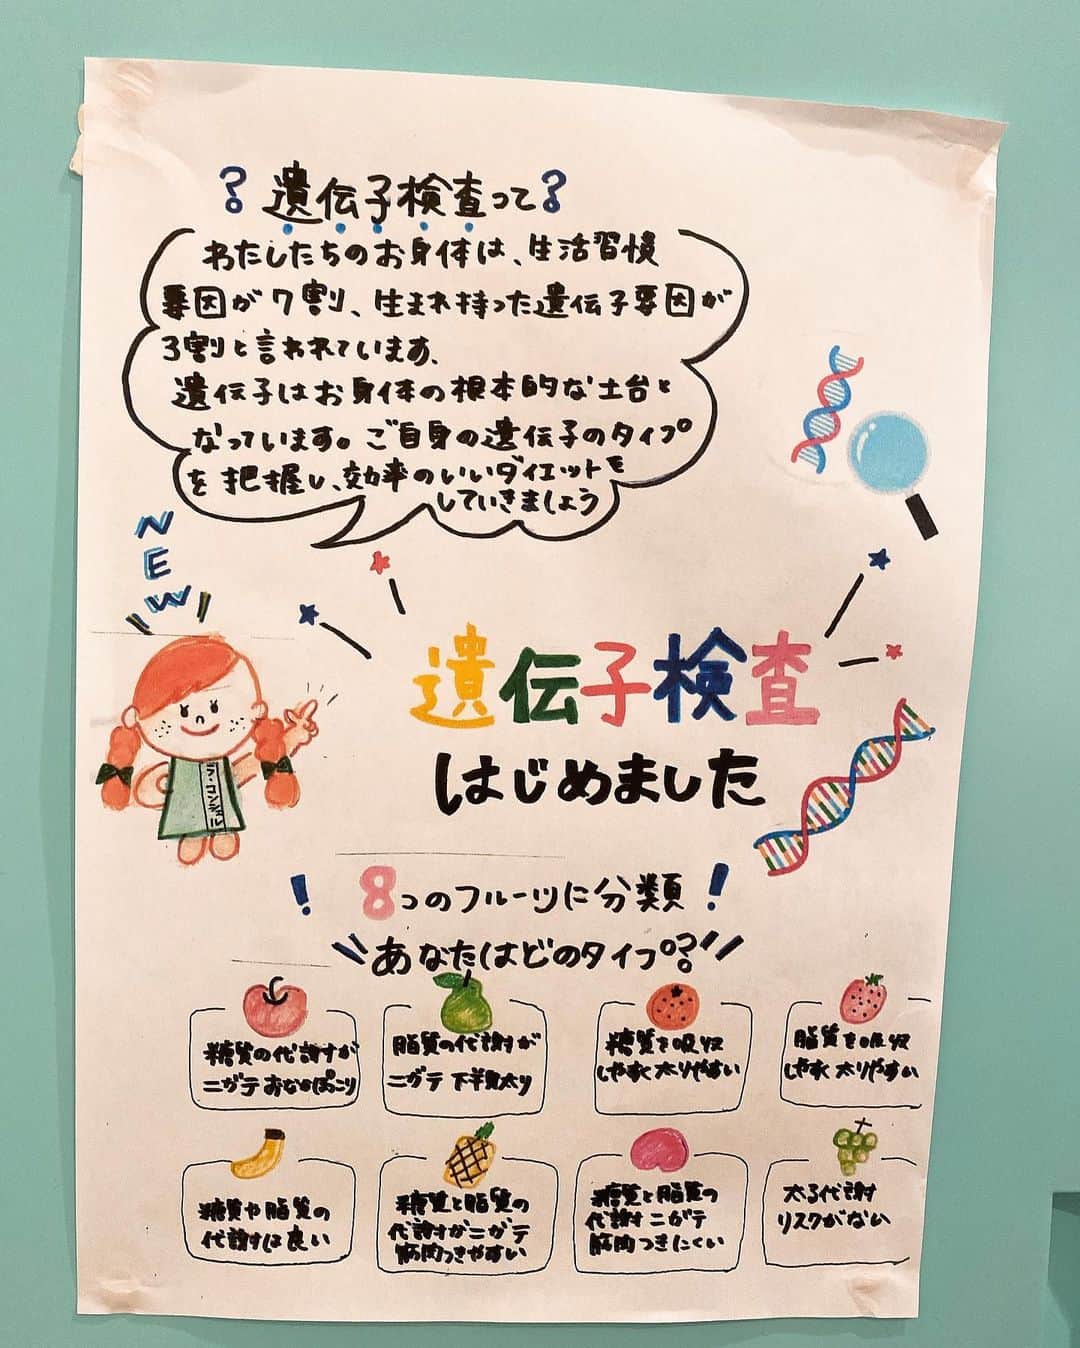 ? 遺伝子検査って?
わたしたちのお身体は、生活習慣
要因が7割、生まれ持った遺伝子要因が
3割と言われています、
遺伝子はお身体の根本的な土台と
なっています。ご自身の遺伝子のタイプ
を把握し、効率のいいダイエットを
していきましょう
NEW
ラ・コンシェル
遺伝子検査
はじめました
! 8つのフルーツに分類 !
あなたはどのタイプ?
糖質の代謝が
ニガテ おなかぽっこり
脂質の代謝が
ニガテ 下半身太り
糖質を吸収
しやすく太りやすい
脂質を吸収
しやすく太りやすい
糖質や脂質の
代謝は良い
糖質と脂質の
代謝がニガテ
筋肉つきやすい
糖質と脂質の
代謝ニガテ
筋肉つきにくい
太る代謝
リスクがない